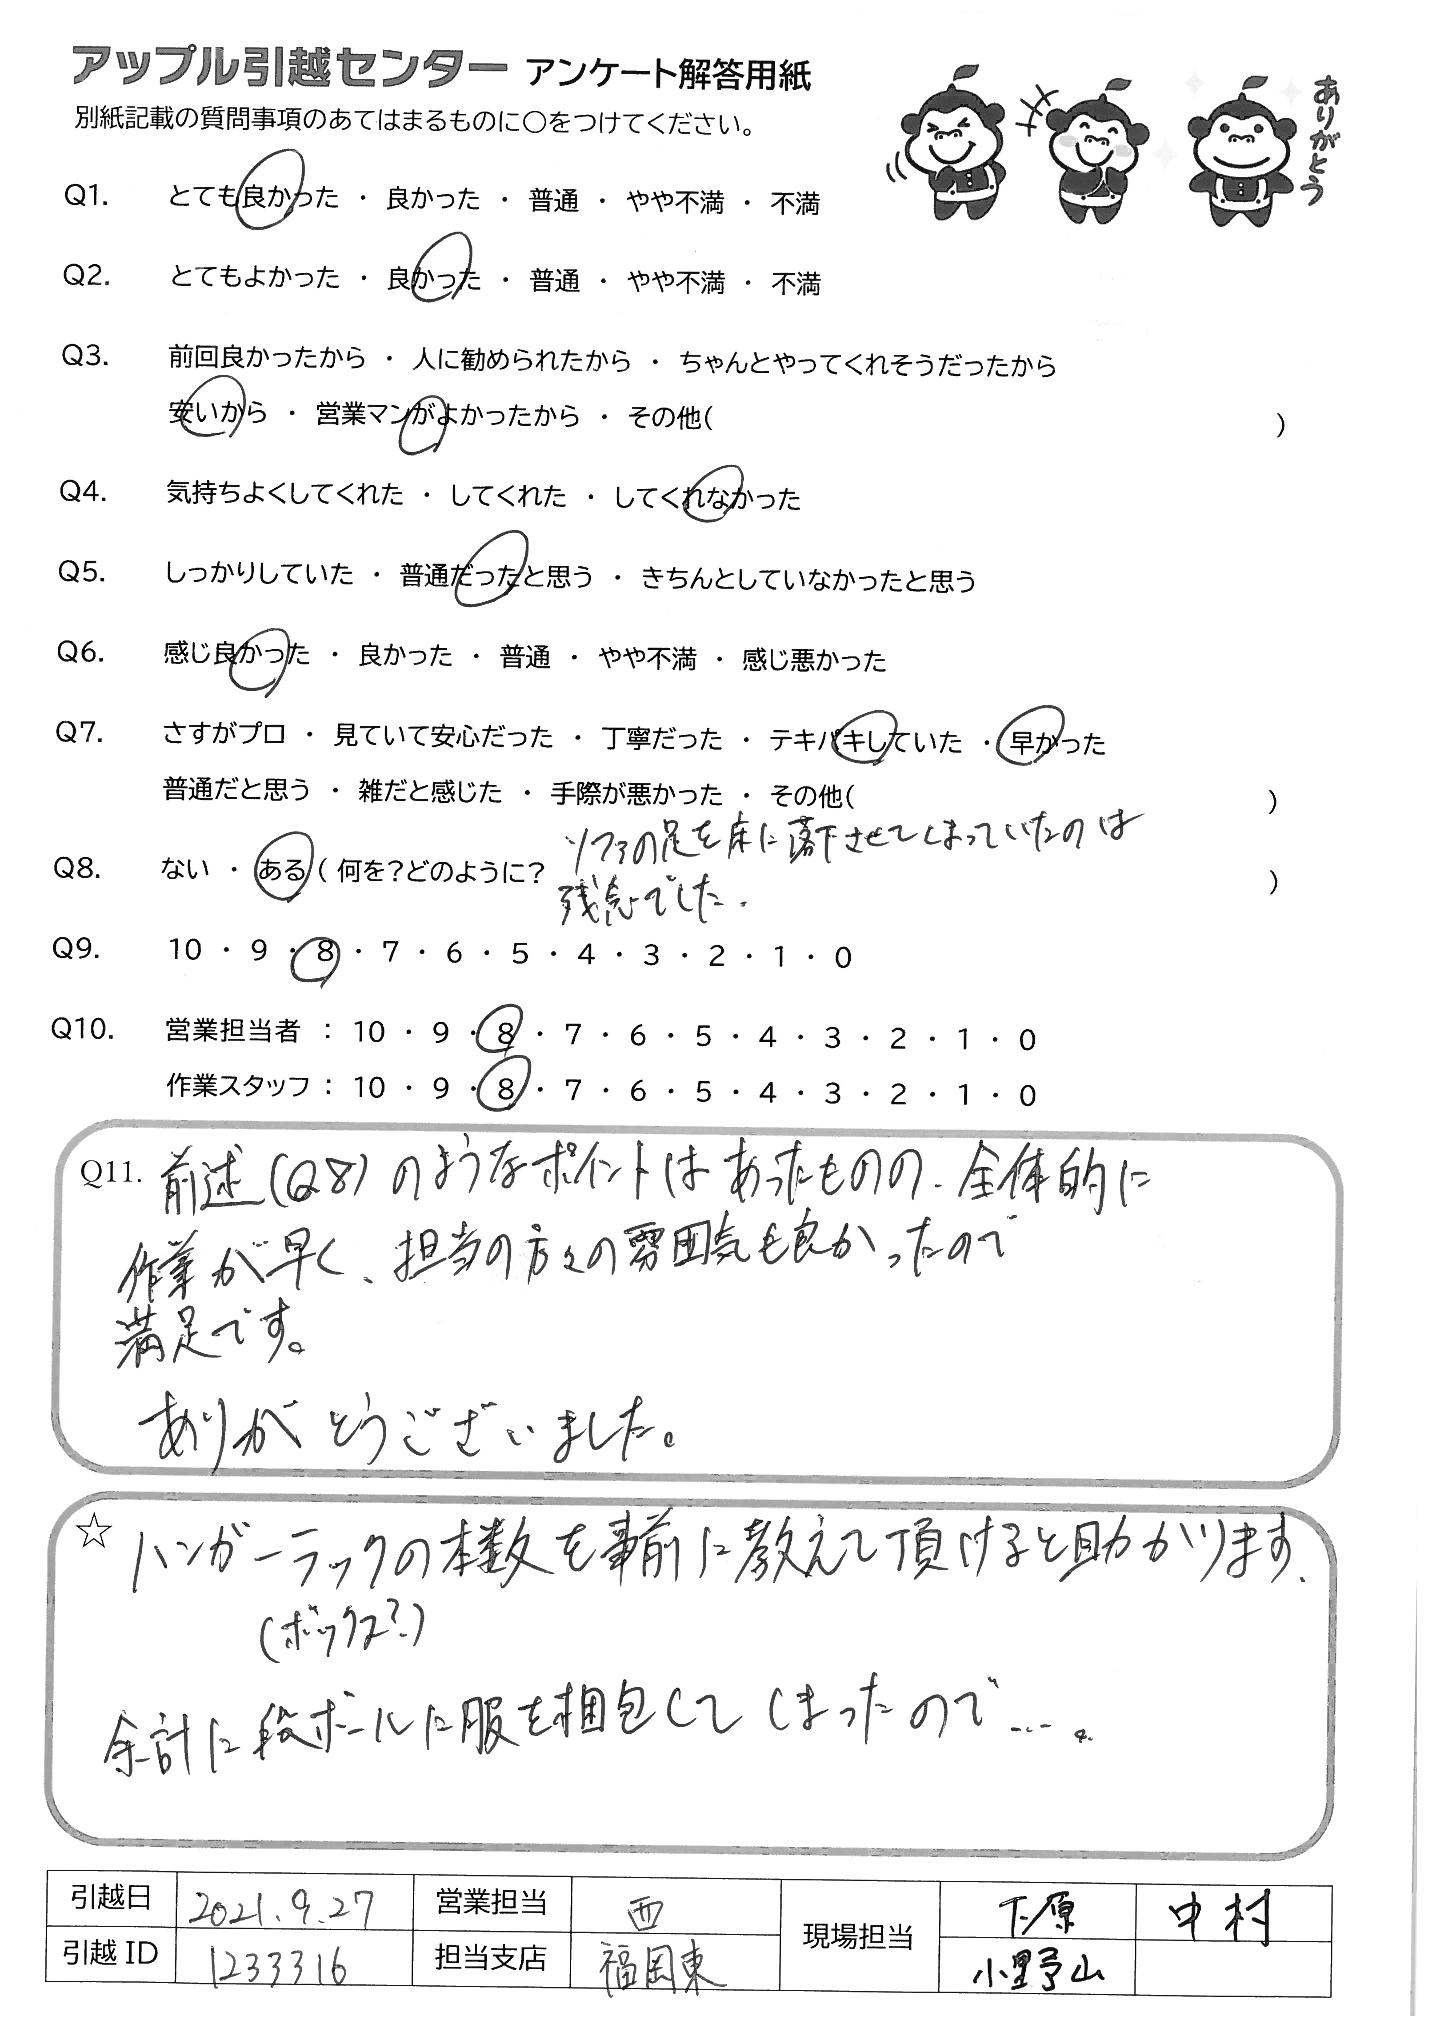 アップル引越センター アンケート解答用紙
別紙記載の質問事項のあてはまるものに○をつけてください。
ありがとう
Q1. とても良かった ・ 良かった ・ 普通 ・ やや不満 ・ 不満
Q2. とてもよかった ・ 良かった ・ 普通 ・ やや不満 ・ 不満
Q3. 前回良かったから ・ 人に勧められたから ・ ちゃんとやってくれそうだったから
安いから ・ 営業マンがよかったから ・ その他( )
Q4. 気持ちよくしてくれた ・ してくれた ・ してくれなかった
Q5. しっかりしていた ・ 普通だったと思う ・ きちんとしていなかったと思う
Q6. 感じ良かった ・ 良かった ・ 普通 ・ やや不満 ・ 感じ悪かった
Q7. さすがプロ ・ 見ていて安心だった ・ 丁寧だった ・ テキパキしていた ・ 早かった
普通だと思う ・ 雑だと感じた ・ 手際が悪かった ・ その他( )
Q8. ない ・ ある ( 何を?どのように? ソファの足を床に落下させてしまっていたのは
残念でした. )
Q9. 10 ・ 9 ・ 8 ・ 7 ・ 6 ・ 5 ・ 4 ・ 3 ・ 2 ・ 1 ・ 0
Q10. 営業担当者 : 10 ・ 9 ・ 8 ・ 7 ・ 6 ・ 5 ・ 4 ・ 3 ・ 2 ・ 1 ・ 0
作業スタッフ : 10 ・ 9 ・ 8 ・ 7 ・ 6 ・ 5 ・ 4 ・ 3 ・ 2 ・ 1 ・ 0
Q11. 前述(Q8)のようなポイントはあったものの、全体的に
作業が早く、担当の方々の雰囲気も良かったので
満足です。
ありがとうございました。
☆ ハンガーラックの本数を事前に教えて頂けると助かります、
(ボックス?)
余計に段ボールに服を梱包してしまったので…。
引越日 2021.9.27 営業担当 西 現場担当 下原 中村
引越ID 1233316 担当支店 福岡東 小野山